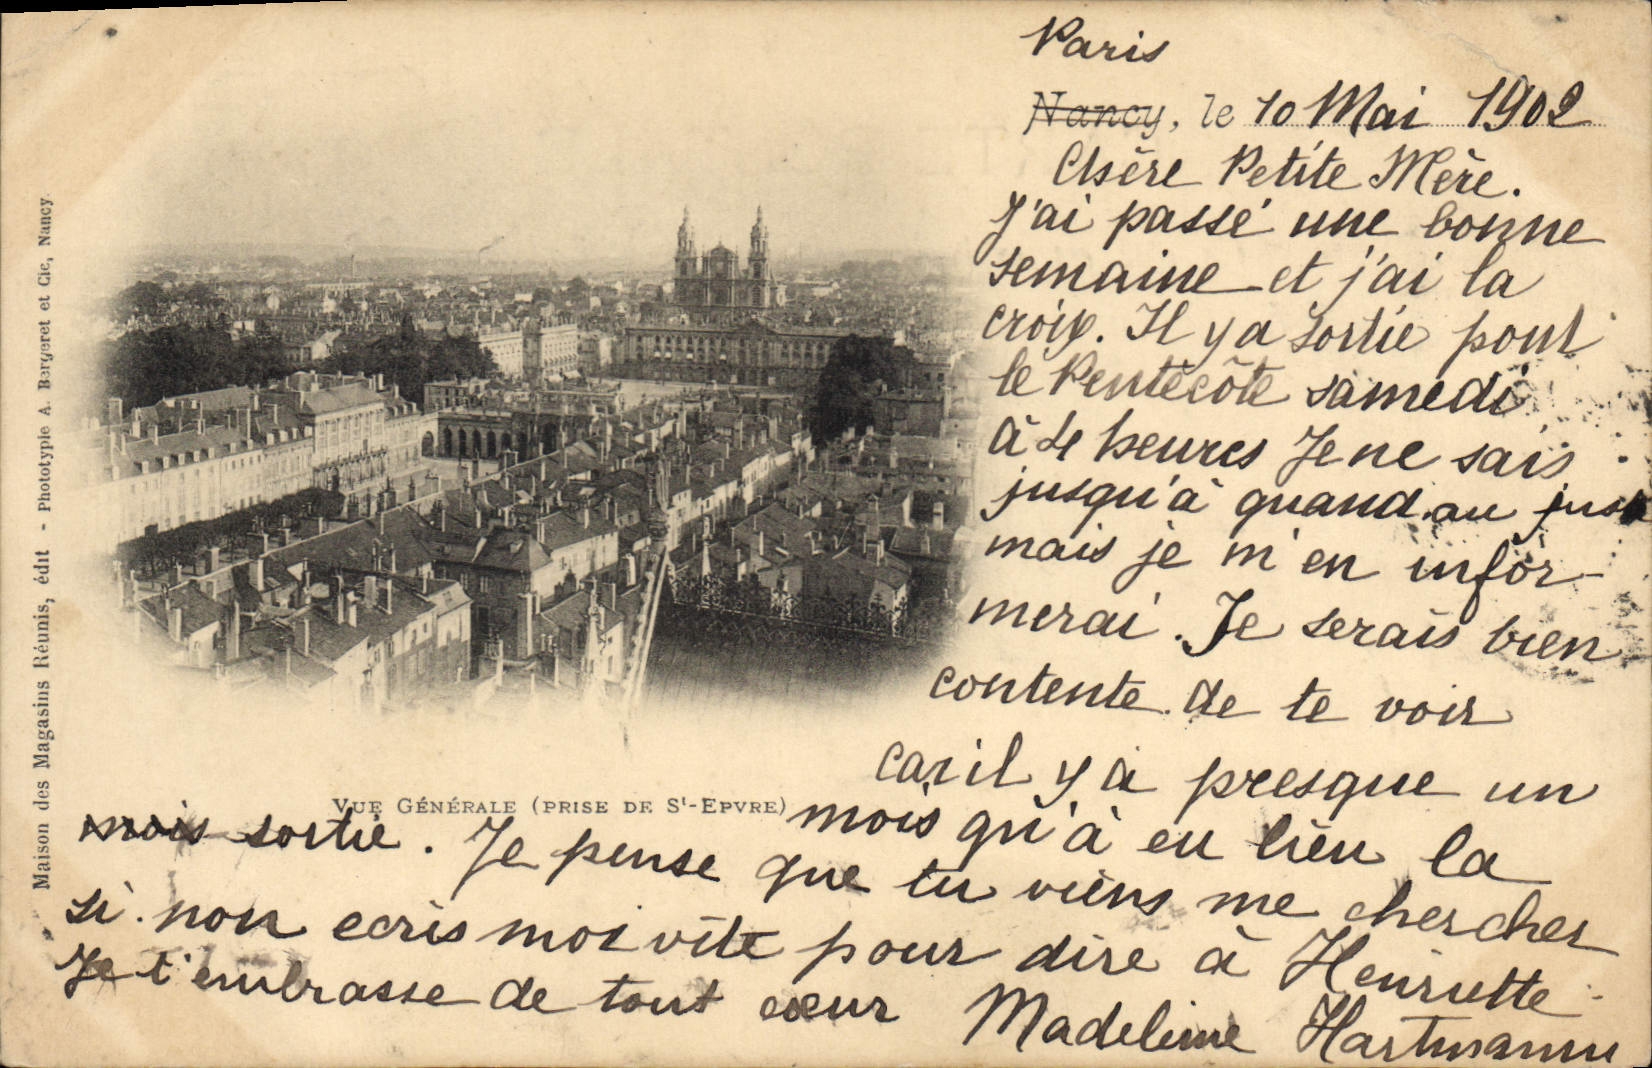 Paris
Nancy, le 10 Mai 1902
Chère Petite Mère.
J'ai passé une bonne
semaine et j'ai la
croix. Il y a sortie pour
le Pentecôte samedi
à 4 heures Je ne sais
jusqu'à quand au juste
mais je m'en infor-
merai. Je serais bien
contente de te voir
car il y a presque un
mois qu'à eu lieu la
mois sortie. Je pense que tu viens me chercher
si non ecris moi vite pour dire à Henriette
Je t'embrasse de tout cœur Madeleine Hartmann
VUE GÉNÉRALE (PRISE DE St-EPVRE)
Maison des Magasins Réunis, édit - Phototypie A. Bergeret et Cie, Nancy.